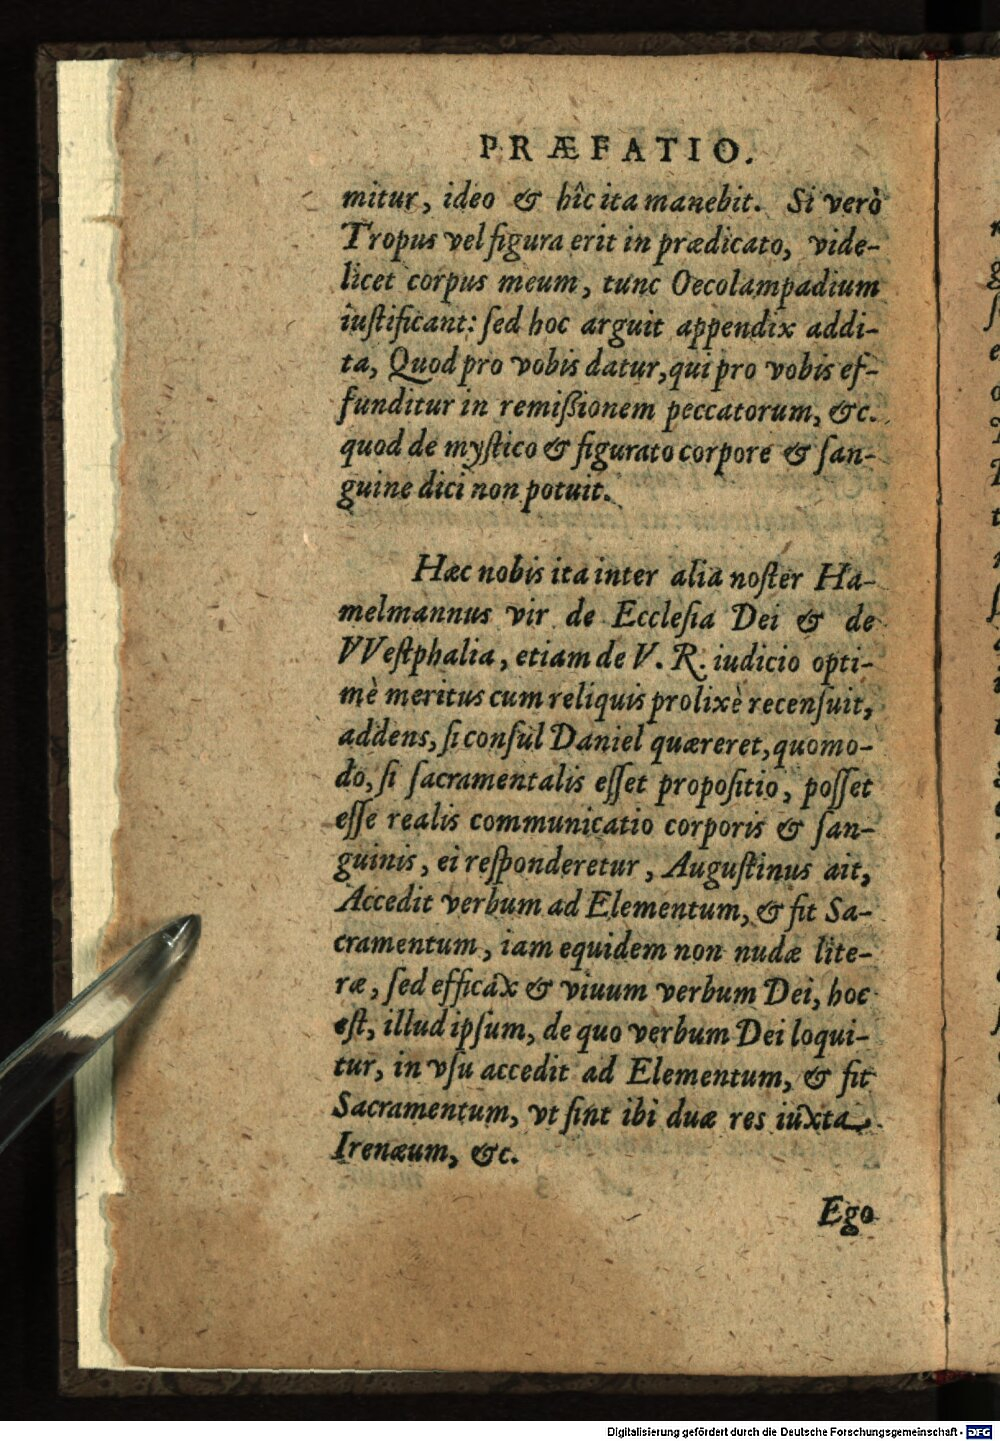 PRÆFATIO.
mitur, ideo & hîc ita manebit. Si verò
Tropus vel figura erit in prædicato, vide-
licet corpus meum, tunc Oecolampadium
iustificant: sed hoc arguit appendix addi-
ta, Quod pro vobis datur, qui pro vobis ef-
funditur in remißionem peccatorum, &c.
quod de mystico & figurato corpore & san-
guine dici non potuit.
Hæc nobis ita inter alia noster Ha-
melmannus vir de Ecclesia Dei & de
VVestphalia, etiam de V. R. iudicio opti-
mè meritus cum reliquis prolixè recensuit,
addens, si consul Daniel quæreret, quomo-
do, si sacramentalis esset propositio, posset
esse realis communicatio corporis & san-
guinis, ei responderetur, Augustinus ait,
Accedit verbum ad Elementum, & fit Sa-
cramentum, iam equidem non nudæ lite-
ræ, sed efficax & viuum verbum Dei, hoc
est, illud ipsum, de quo verbum Dei loqui-
tur, in vsu accedit ad Elementum, & fit
Sacramentum, vt sint ibi duæ res iuxta
Irenæum, &c.
Ego
Digitalisierung gefördert durch die Deutsche Forschungsgemeinschaft - DFG